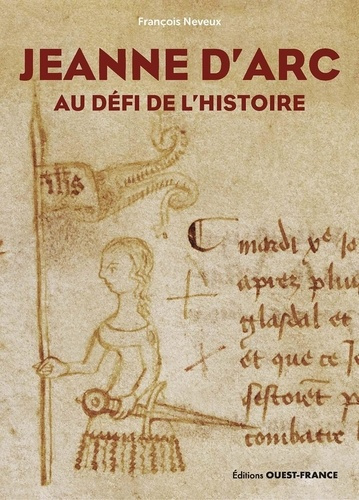 François Neveux
JEANNE D'ARC
AU DÉFI DE L'HISTOIRE
ihs
mardi xe jo
aprez plui
glasdal et
et que ce Je
sestoiēt p
combatre
Éditions OUEST-FRANCE